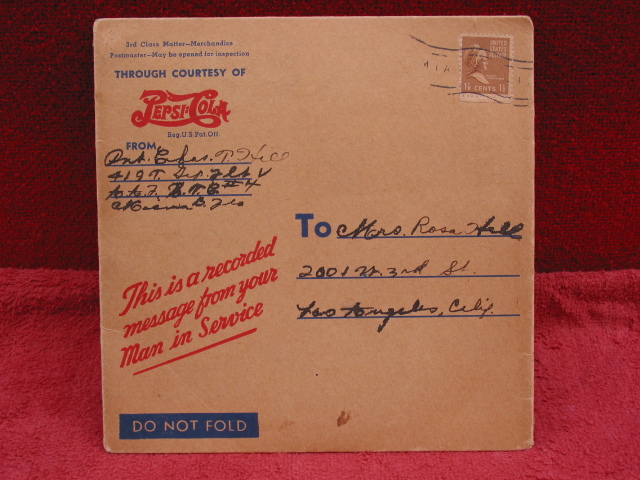 3rd Class Matter—Merchandise
Postmaster—May be opened for inspection
THROUGH COURTESY OF
PEPSI-COLA
Reg. U.S. Pat. Off.
FROM
Pvt. Chas. T. Hill
419 T.
A.A.F. B.T.C #4
UNITED
STATES
POSTAGE
1½ CENTS 1½
To Mrs. Rosa Hill
2001 W. 3rd St.
Los Angeles, Calif.
This is a recorded
message from your
Man in Service
DO NOT FOLD